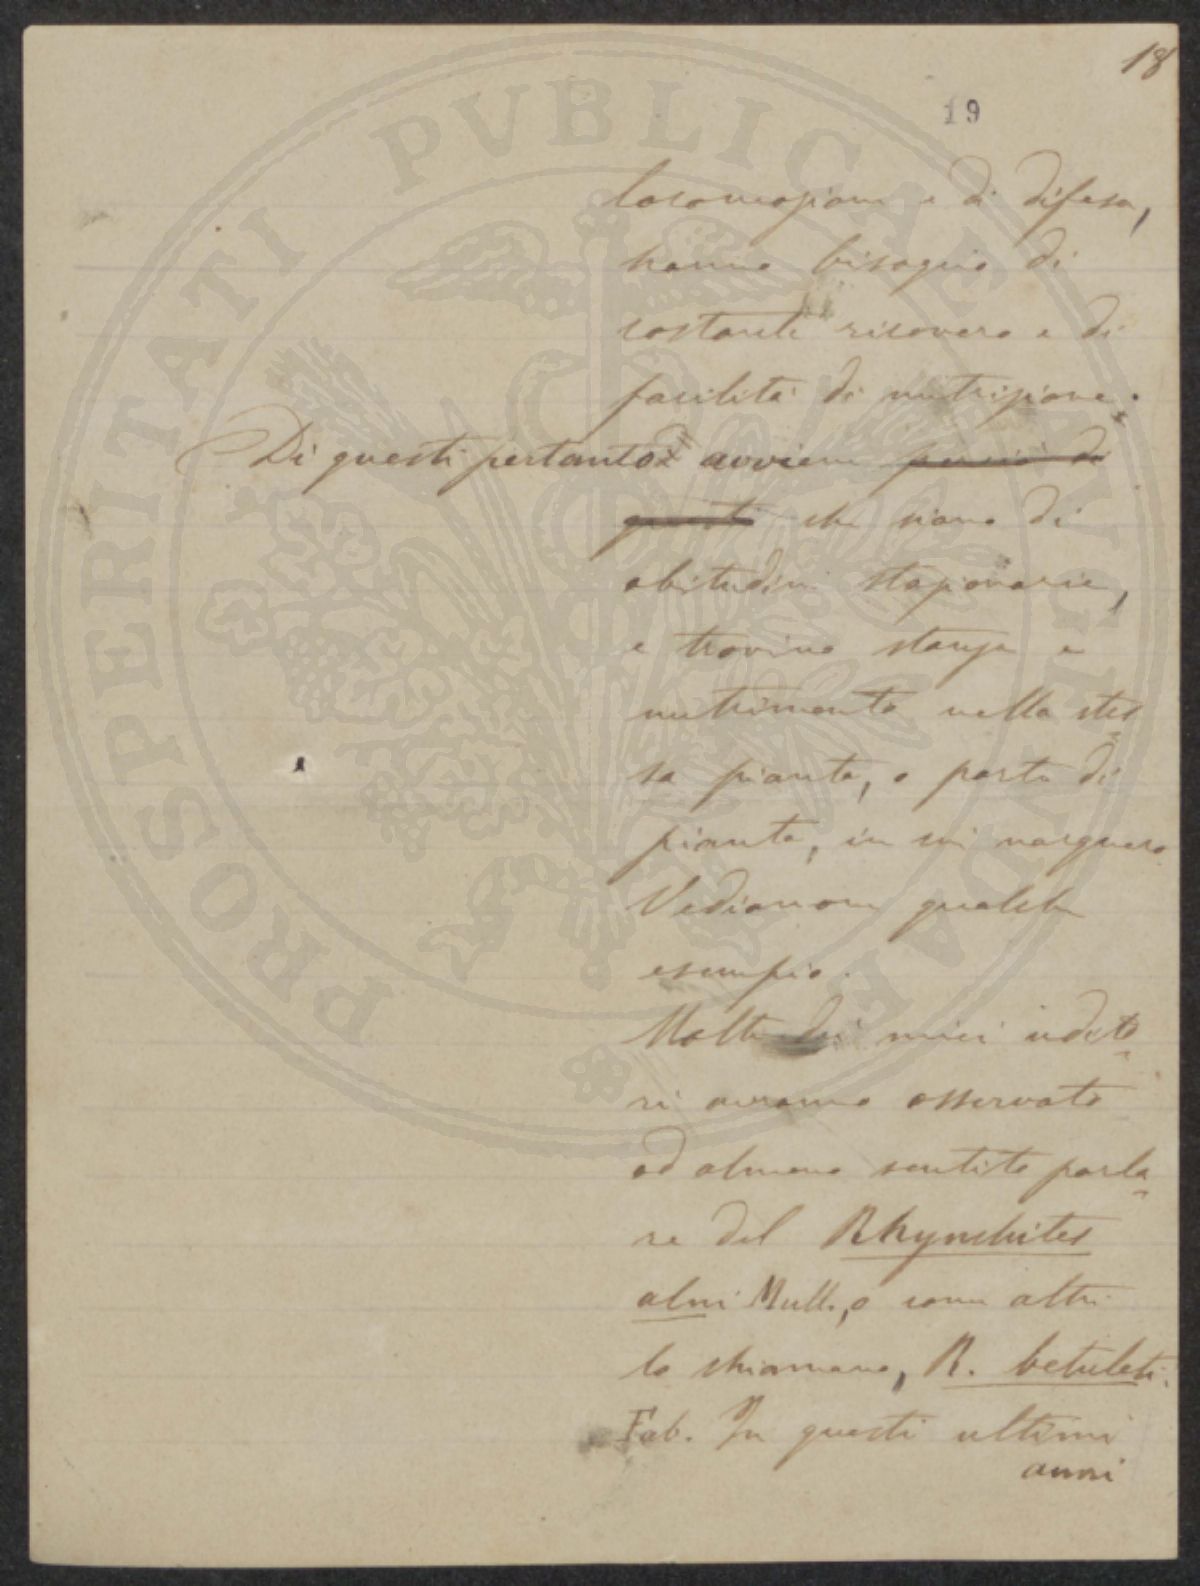 18
19
locomozione e di difesa,
hanno bisogno di
costante ricovero e di
facilità di nutrizione.
Di questi pertanto avviene perciò di
questi che siano di
abitudini stazionarie,
e trovino stanza e
nutrimento nella stes
sa pianta, o parte di
pianta, in cui nacquero.
Vediamone qualche
esempio.
Molti dei miei udito
ri avranno osservato
od almeno sentito parla
re del Rhynchites
alni Mull., o come altri
lo chiamano, R. betuleti.
Fab. In questi ultimi
anni
PROSPERITATI PVBLICAE VINCTI